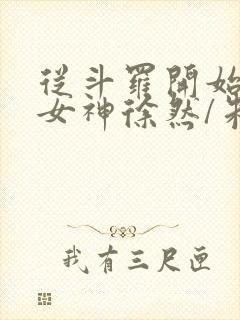 從斗羅開始
女神徐然/朱
我有三尺匣